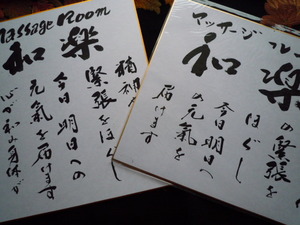 Massage Room
和楽
精神
緊張をほぐし
今日明日への
元氣を届けます
心が和み身体が
マッサージ
和楽
の緊張を
ほぐし
今日明日へ
の元氣を
届けます